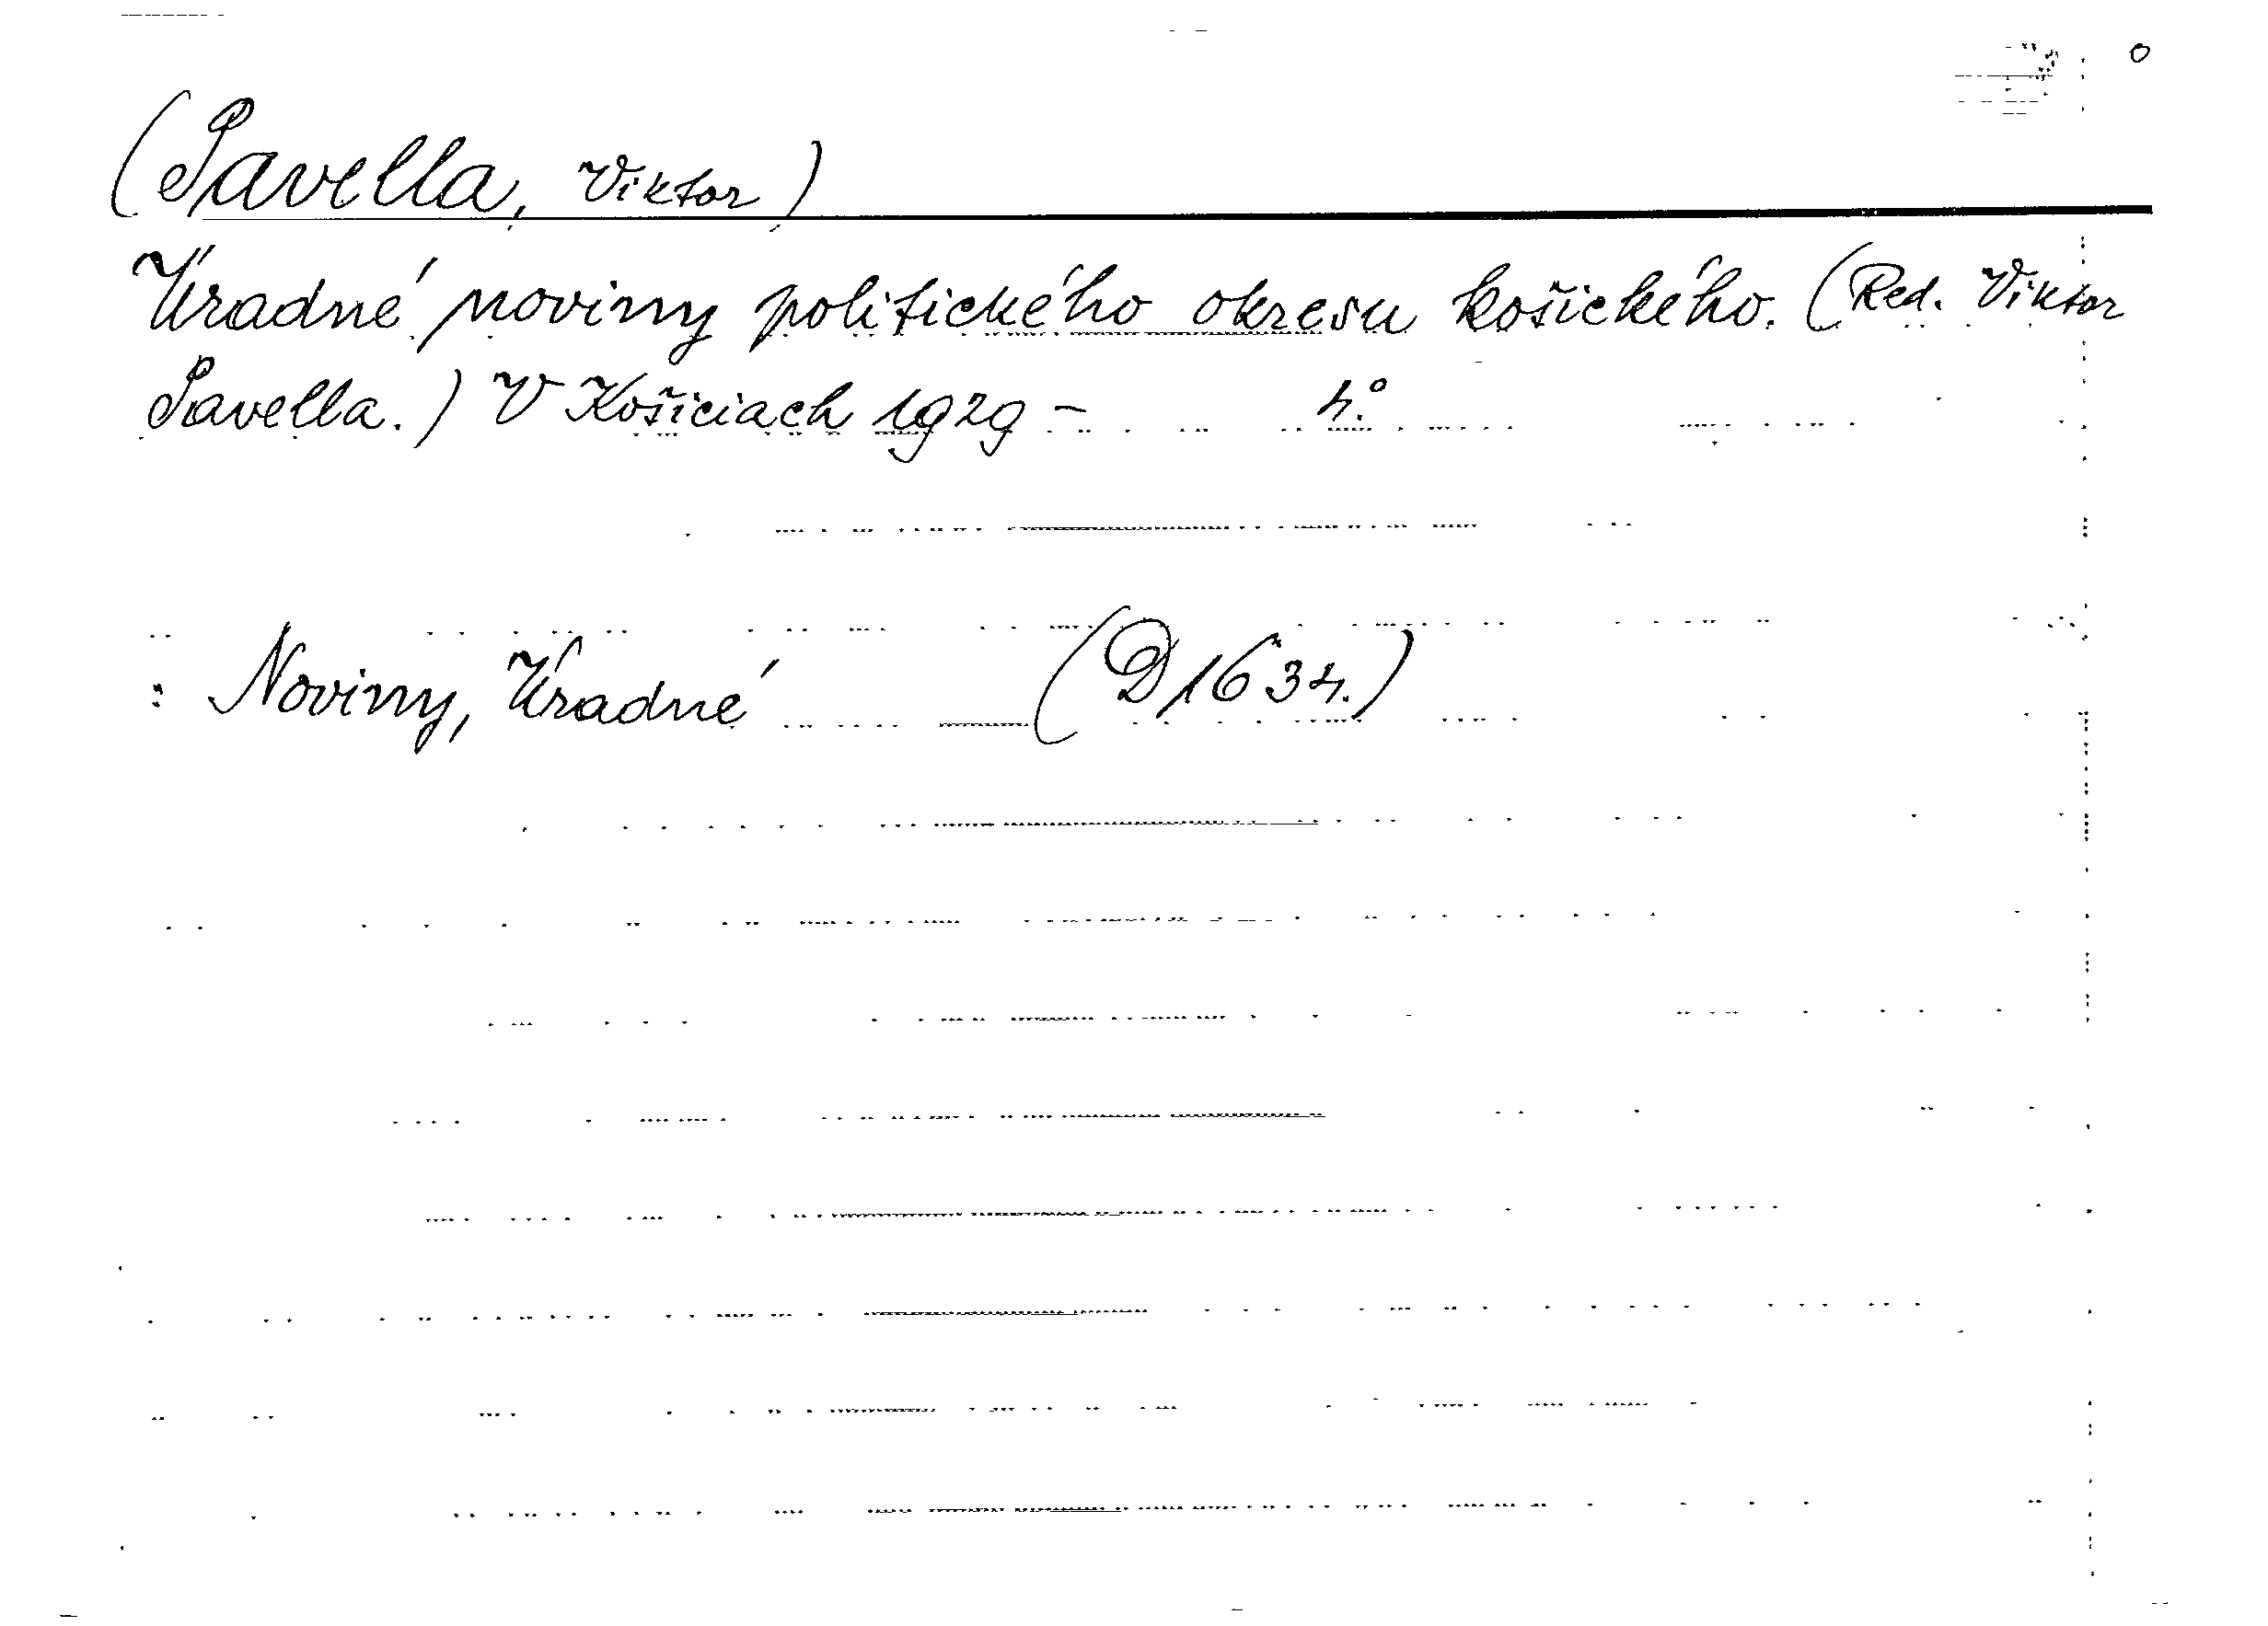 (Savella, Viktor)
Úradné noviny politického okresu košického. (Red. Viktor
Savella.) V Košiciach 1929 – 4.°
: Noviny, Úradné (D 1634.)